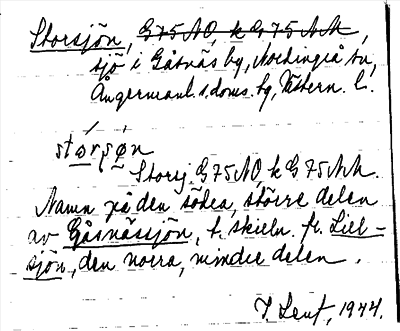 Storsjön, G 75 NO, k G 75 NN,
sjö i Gåsnäs by, Nordingrå sn,
Ångermanl. s. doms. hg, Västern. l.
stórsøn
Storsj. G 75 NO, k G 75 NN.
Namn på den södra, större delen
av Gåsnässjön, t. skilln. fr. Lill-
sjön, den norra, mindre delen.
1944.